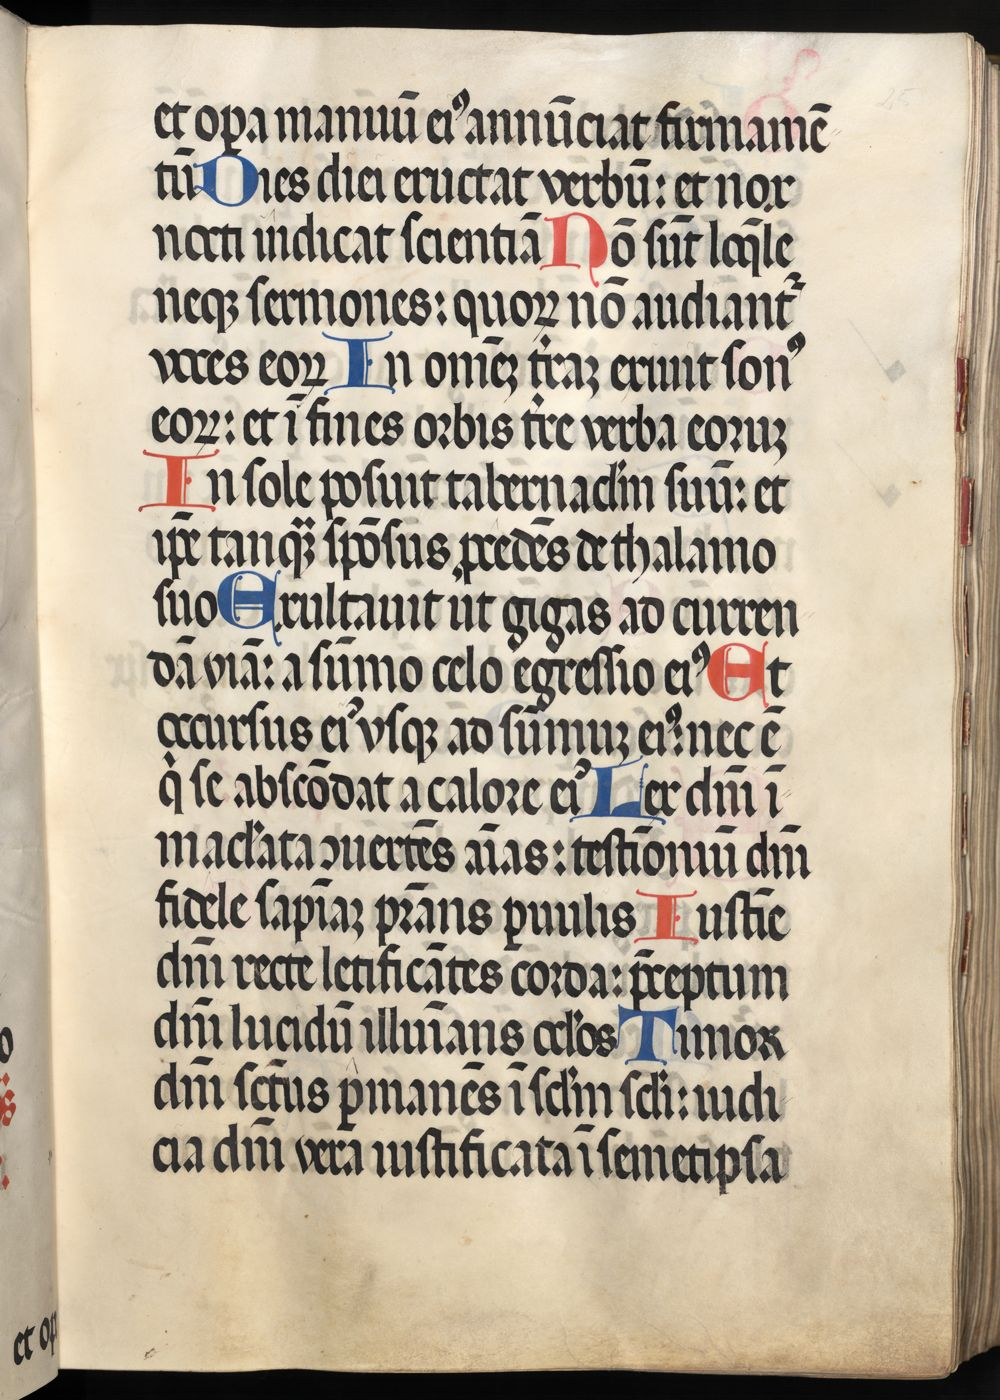 et oꝑa manuū eiꝰ annūciat firmamē
tū Dies diei eructat verbū: et nox
nocti indicat scientiā Nō sūt loq̄le
neqꝫ sermones: quoꝝ nō audiant᷑
voces eoꝝ In omēꝫ t̄raꝫ exiuit sonꝰ
eoꝝ: et ī fines orbis t̄re verba eoruꝫ
In sole posuit tabernacl̄m suū: et
ip̄e tanqꝫ spōsus ꝓcedēs de thalamo
suo Exultauit ut gigas ad curren
dā viā: a sūmo celo egressio eiꝰ Et
occursus eiꝰ vsqꝫ ad sūmuꝫ eiꝰ: nec ē
qͥ se abscōdat a calore eiꝰ Lex dn̄i ī
macl̄ata ꝯuertēs aīas: testīoniū dn̄i
fidele sapīaꝫ pr̄āns puulis Iustīe
dn̄i recte letificātes corda: p̄ceptum
dn̄i lucidū illuīans oc̄los Timor
dn̄i sc̄tus ꝑmanēs ī scl̄m scl̄i: iudi
cia dn̄i vera iustificata ī semetipsa
et oꝑ